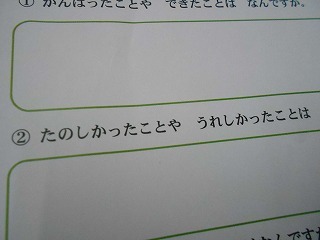 ① がんばったことや できたことは なんですか。
② たのしかったことや うれしかったことは
なんですか